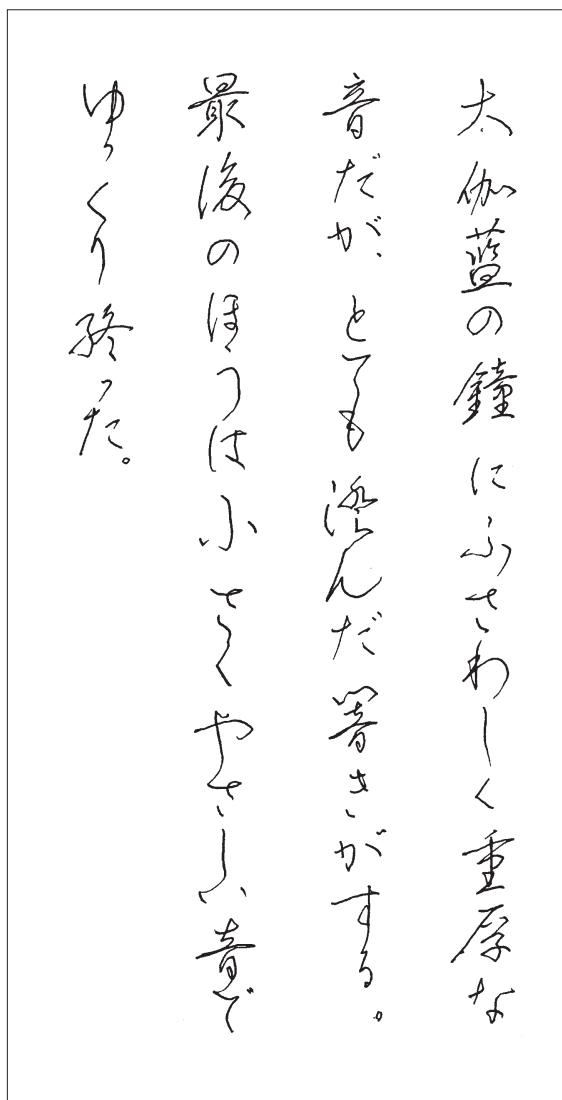 大伽藍の鐘にふさわしく重厚な
音だが、とても澄んだ響きがする。
最後のほうは小さくやさしい音で
ゆっくり終った。